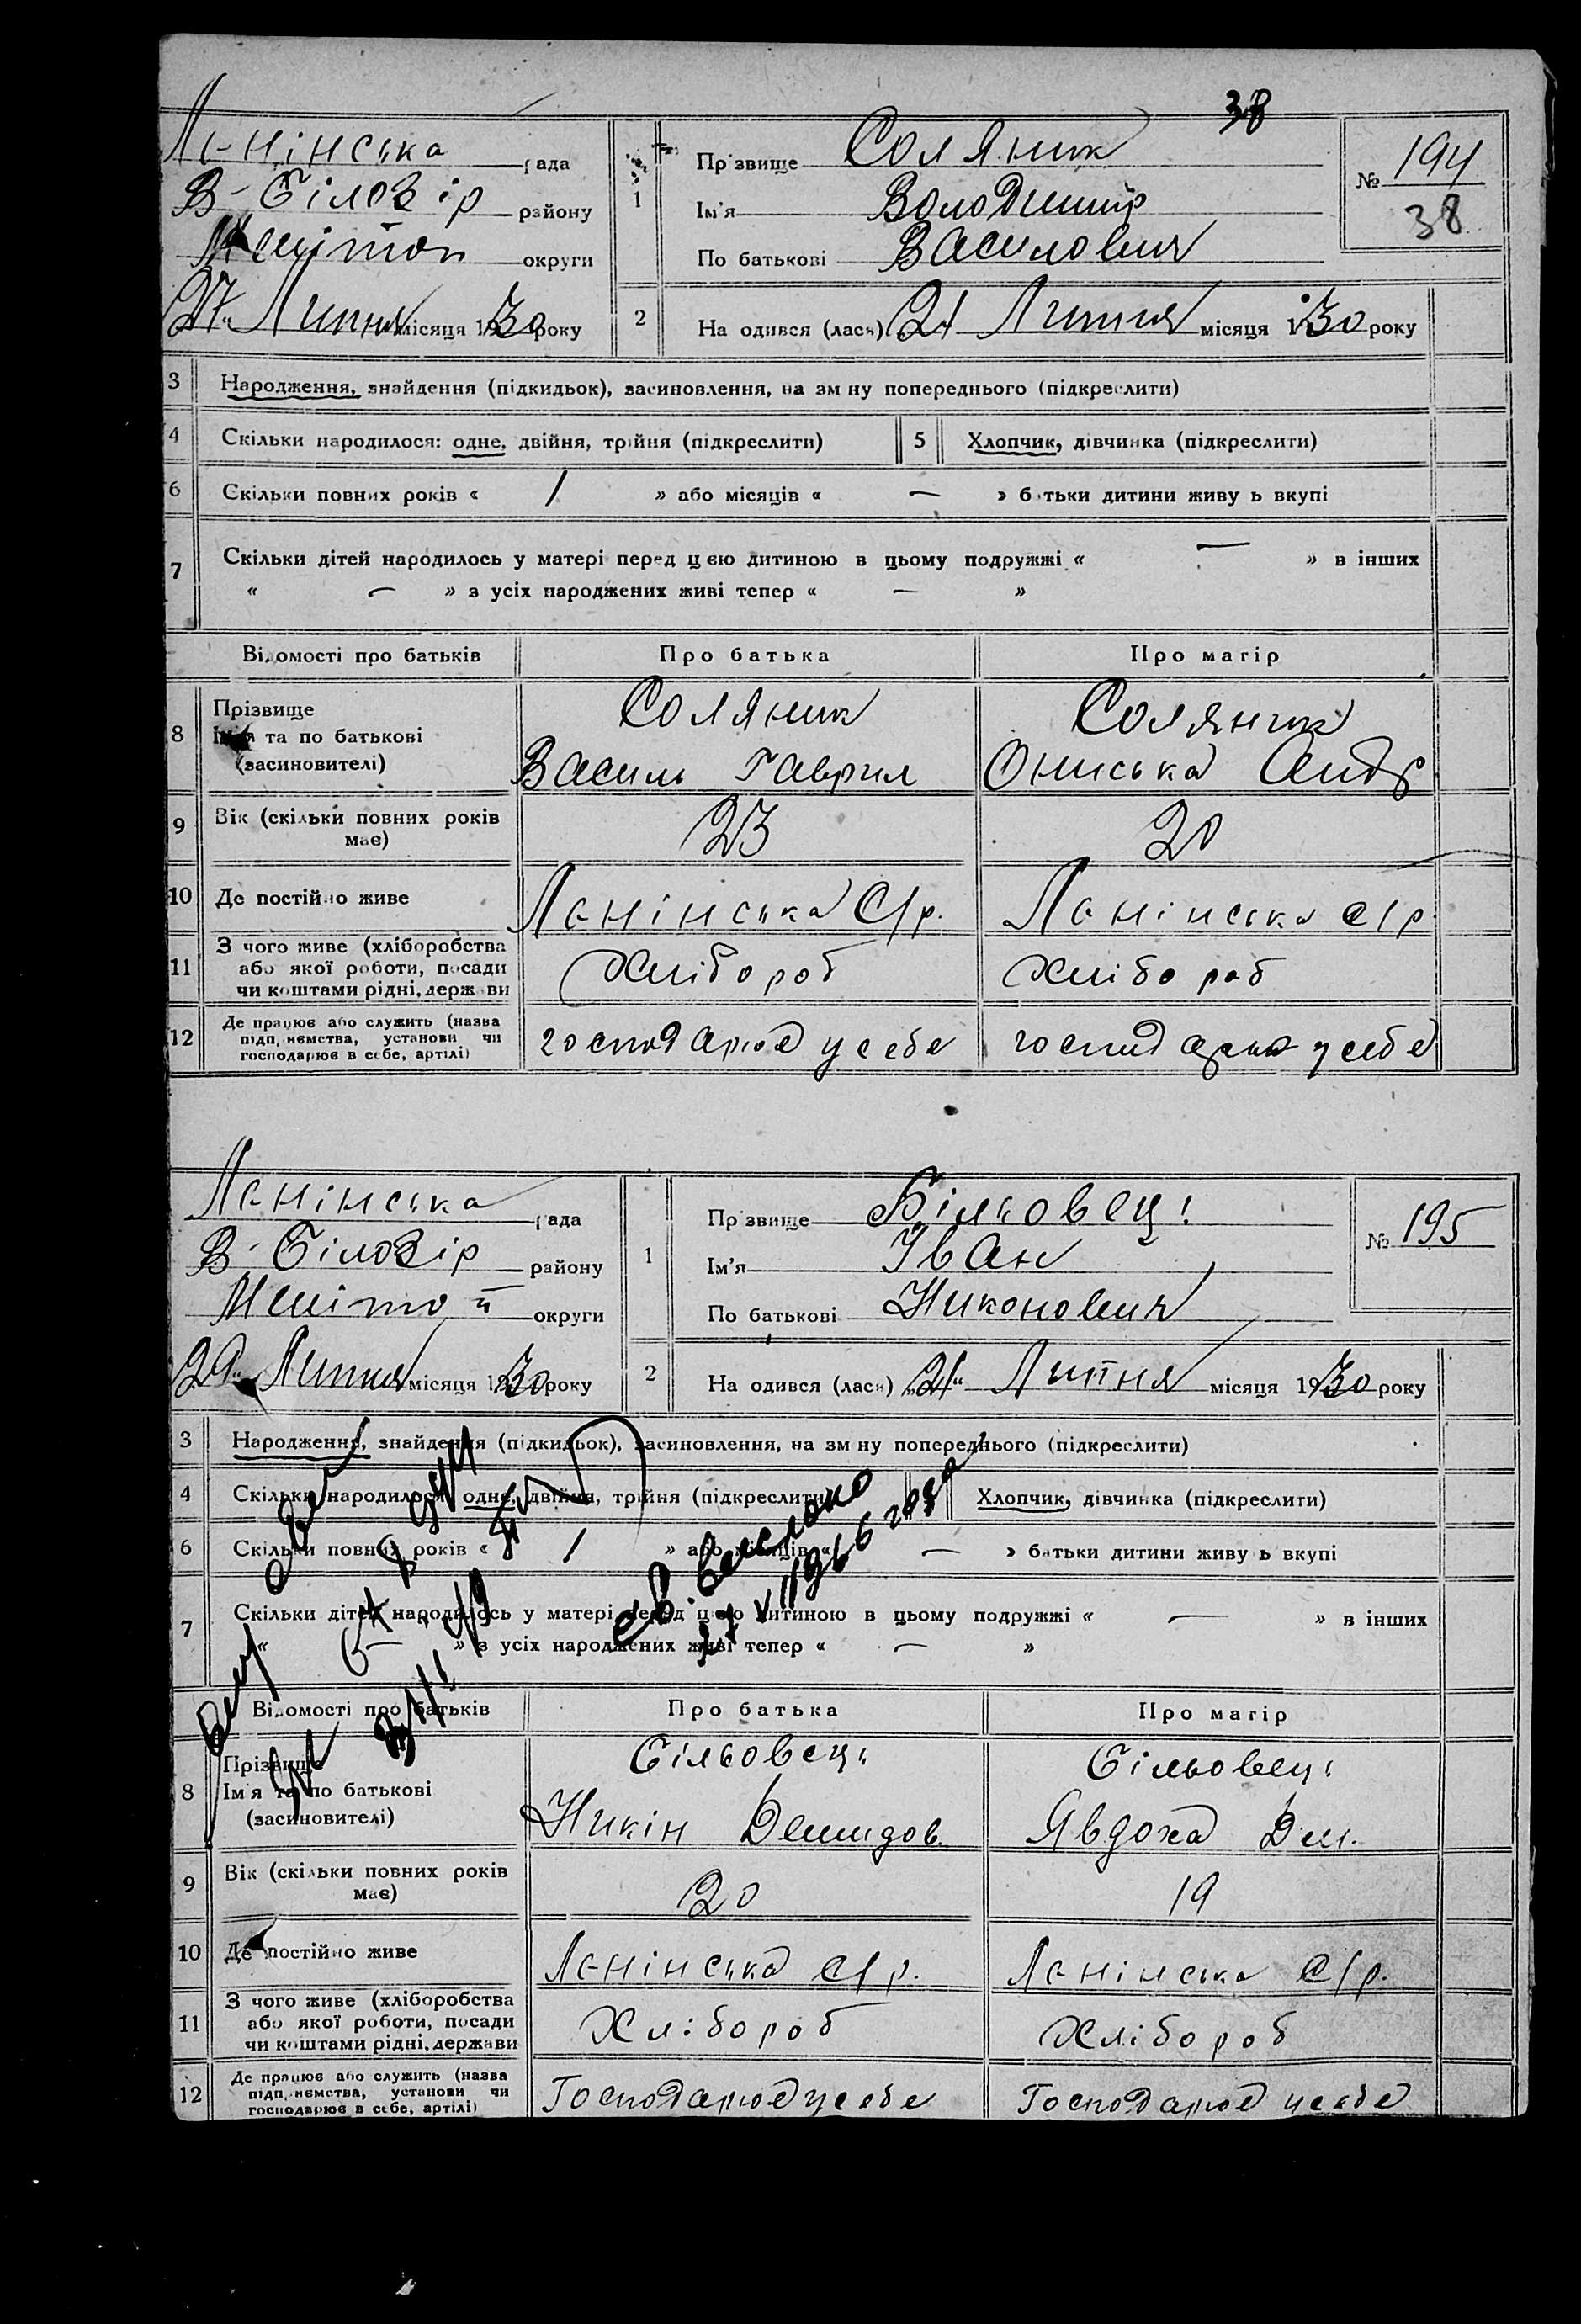 38
Ленінська рада
В-Білозір району
Меліто п округи
27 Липня місяця 1930 року
1
Прізвище Соляник
Ім'я Володимир
По батькові Василович
№ 194
38
2
На одився (лася) 21 Липня місяця 1930 року
3 Народження, знайдення (підкидьок), засиновлення, на зм ну попереднього (підкреслити)
4 Скільки народилося: одне, двійня, трійня (підкреслити) 5 Хлопчик, дівчинка (підкреслити)
6 Скільки повних років « / » або місяців « — » батьки дитини живу ь вкупі
7 Скільки дітей народилось у матері перед цією дитиною в цьому подружжі « — » в інших
« — » з усіх народжених живі тепер « — »
Відомості про батьків Про батька Про матір
8 Прізвище Ім'я та по батькові (засиновителі)
Соляник Соляник
Василь Гаврил Ониська Андр
9 Вік (скільки повних років має) 23 20
10 Де постійно живе Ленінська С/р. Ленінська с/р
11 З чого живе (хліборобства або якої роботи, посади чи коштами рідні, держави Хлібороб Хлібороб
12 Де працює або служить (назва підп, ємства, установи чи господарює в себе, артілі) господарює у себе господарює у себе
Ленінська рада
В-Білозір району
Меліто п округи
29 Липня місяця 1930 року
1
Прізвище Більовець
Ім'я Іван
По батькові Никонович
№ 195
2
На одився (лася) „21“ Липня місяця 1930 року
3 Народження, знайдення (підкидьок), засиновлення, на зм ну попереднього (підкреслити)
4 Скільки народилося: одне, двійня, трійня (підкреслити) Хлопчик, дівчинка (підкреслити)
6 Скільки повних років « / » або місяців « — » батьки дитини живу ь вкупі
7 Скільки дітей народилось у матері перед цією дитиною в цьому подружжі « — » в інших
« — » з усіх народжених живі тепер « — »
1966 года
Відомості про батьків Про батька Про матір
8 Прізвище Ім'я та по батькові (засиновителі)
Більовець Більовець
Никін Демидов. Явдоха Дем.
9 Вік (скільки повних років має) 20 19
10 Де постійно живе Ленінська с/р. Ленінська С/р.
11 З чого живе (хліборобства або якої роботи, посади чи коштами рідні, держави Хлібороб Хлібороб
12 Де працює або служить (назва підп, ємства, установи чи господарює в себе, артілі) Господарює у себе Господарює у себе